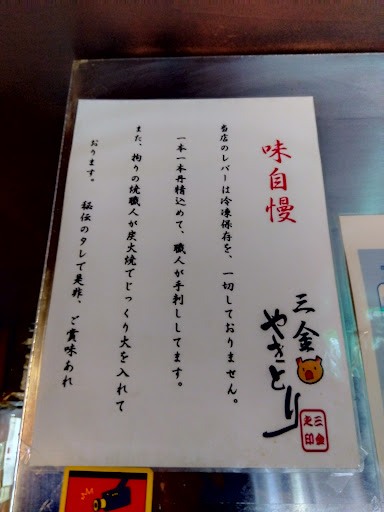 味自慢
三金
やきとり
三金
之印
当店のレバーは冷凍保存を、一切しておりません。
一本一本丹精込めて、職人が手刺ししてます。
また、拘りの焼職人が炭火焼でじっくり火を入れて
おります。 秘伝のタレで是非、ご賞味あれ